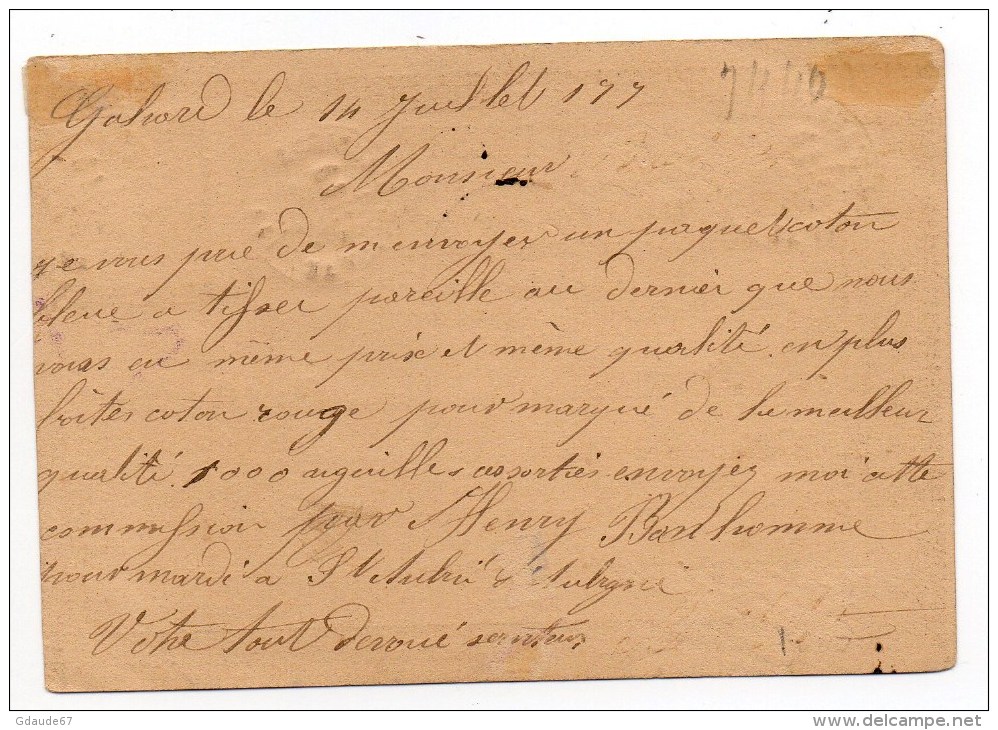 Gahard le 14 Juillet 177
Monsieur
Je vous prie de m envoyer un paquet coton
bleue a tisser pareille au dernier que nous
vous au même prix et même qualité en plus
boîtes coton rouge pour marqué de la meilleur
qualité 1000 aiguilles assorties envoyez moi cette
commission par Henry Bonhomme
pour mardi a St Aubin d'Aubigné
Votre tout dévoué serviteur
Gdaude67
www.delcampe.net